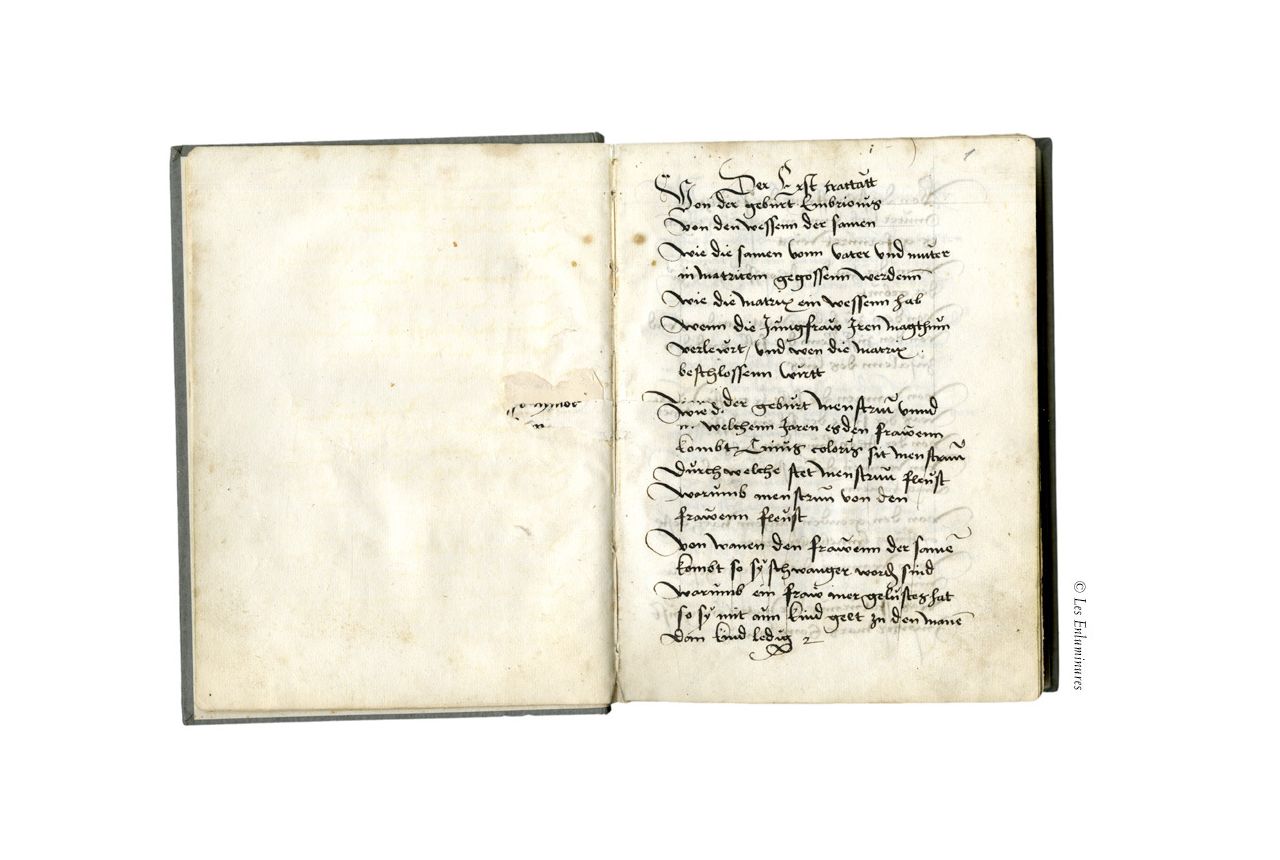 Der Erst trattatt
Von der geburt Embrionis
von den wessenn der samen
wie die samen vonn vater vnd muter
in matricem gegossenn werdenn
wie die matrix ein wessenn hab
wenn die Jungfraw Iren magthum
verlewrt / vnd wen die matrix
beschlossenn wirtt
wie der geburt menstruu vnnd
welchenn Jaren es den frawenn
kombt Cuius coloris sit menstruu
durch welche stet menstruu fleust
warumb menstruu von den
frawenn fleust
von wanen den frawenn der same
kombt so sy schwanger word sind
warumb ein fraw mer gelustes hat
so sy mit aim kind gett zu den mane
dan kind ledig
1
© Les Enluminures